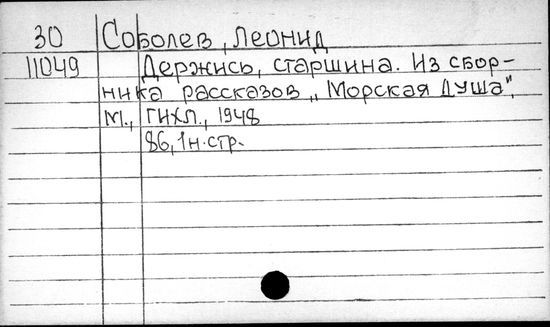 30 Соболев, Леонид
11049 Держись, старшина. Из сбор-
ника рассказов „Морская душа".
М., ГИХЛ., 1948
86, 1 н. стр.